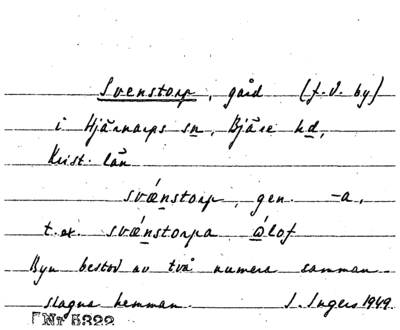 Svenstorp, gård (f.d. by)
i Hjärnarps sn, Bjäre hd,
Krist. län
svǽnstorp, gen. -a,
t.ex. svǽnstorpa ólof
Byn bestod av två numera samman-
slagna hemman. I. Ingers 1949.
Nr 5322